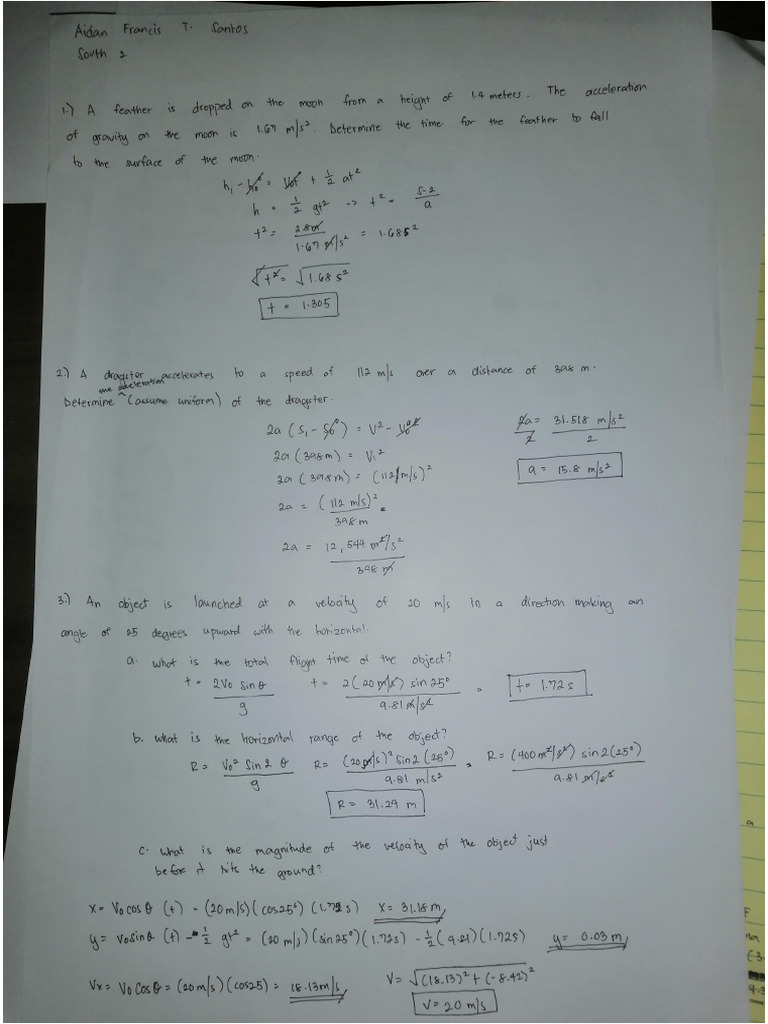 Aidan Francis T. Santos
South 2
1.) A feather is dropped on the moon from a height of 1.4 meters. The acceleration
of gravity on the moon is 1.67 m/s². Determine the time for the feather to fall
to the surface of the moon.
h₁ - h₀ = V₀t + 1/2 at²
h = 1/2 gt² -> t² = s-2/a
t² = 2.8m/1.67 m/s² = 1.68s²
√t² = √1.68 s²
t = 1.30s
2.) A dragster accelerates to a speed of 112 m/s over a distance of 398 m.
Determine ^the acceleration (assume uniform) of the dragster.
2a (s₁ - s₀) = V² - V₀²
2a (398m) = V₁²
2a (398m) = (112 m/s)²
2a = (112 m/s)²/398m
2a = 12,544 m²/s²/398 m
2a/2 = 31.518 m/s²/2
a = 15.8 m/s²
3.) An object is launched at a velocity of 20 m/s in a direction making an
angle of 25 degrees upward with the horizontal.
a. what is the total flight time of the object?
t = 2V₀ sin θ/g t = 2(20 m/s) sin 25°/9.81 m/s² = t = 1.72 s
b. what is the horizontal range of the object?
R = V₀² sin 2 θ/g R = (20 m/s)² sin 2 (25°)/9.81 m/s² = R = (400 m²/s²) sin 2(25°)/9.81 m/s²
R = 31.29 m
c. what is the magnitude of the velocity of the object just
before it hits the ground?
x = V₀ cos θ (t) = (20 m/s)(cos 25°)(1.72 s) x = 31.18 m
y = V₀ sin θ (t) - 1/2 gt² = (20 m/s)(sin 25°)(1.72s) - 1/2 (9.81)(1.72s) y = 0.03 m
Vx = V₀ cos θ = (20 m/s)(cos 25) = 18.13 m/s V = √(18.13)² + (-8.42)²
V = 20 m/s